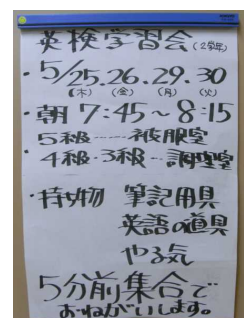 英検学習会(2学年)
・5/25.26.29.30
(木)(金)(月)(火)
・朝 7:45～8:15
5級……被服室
・4級・3級…調理室
・持ち物 筆記用具
英語の道具
やる気
5分前集合で
おねがいします。